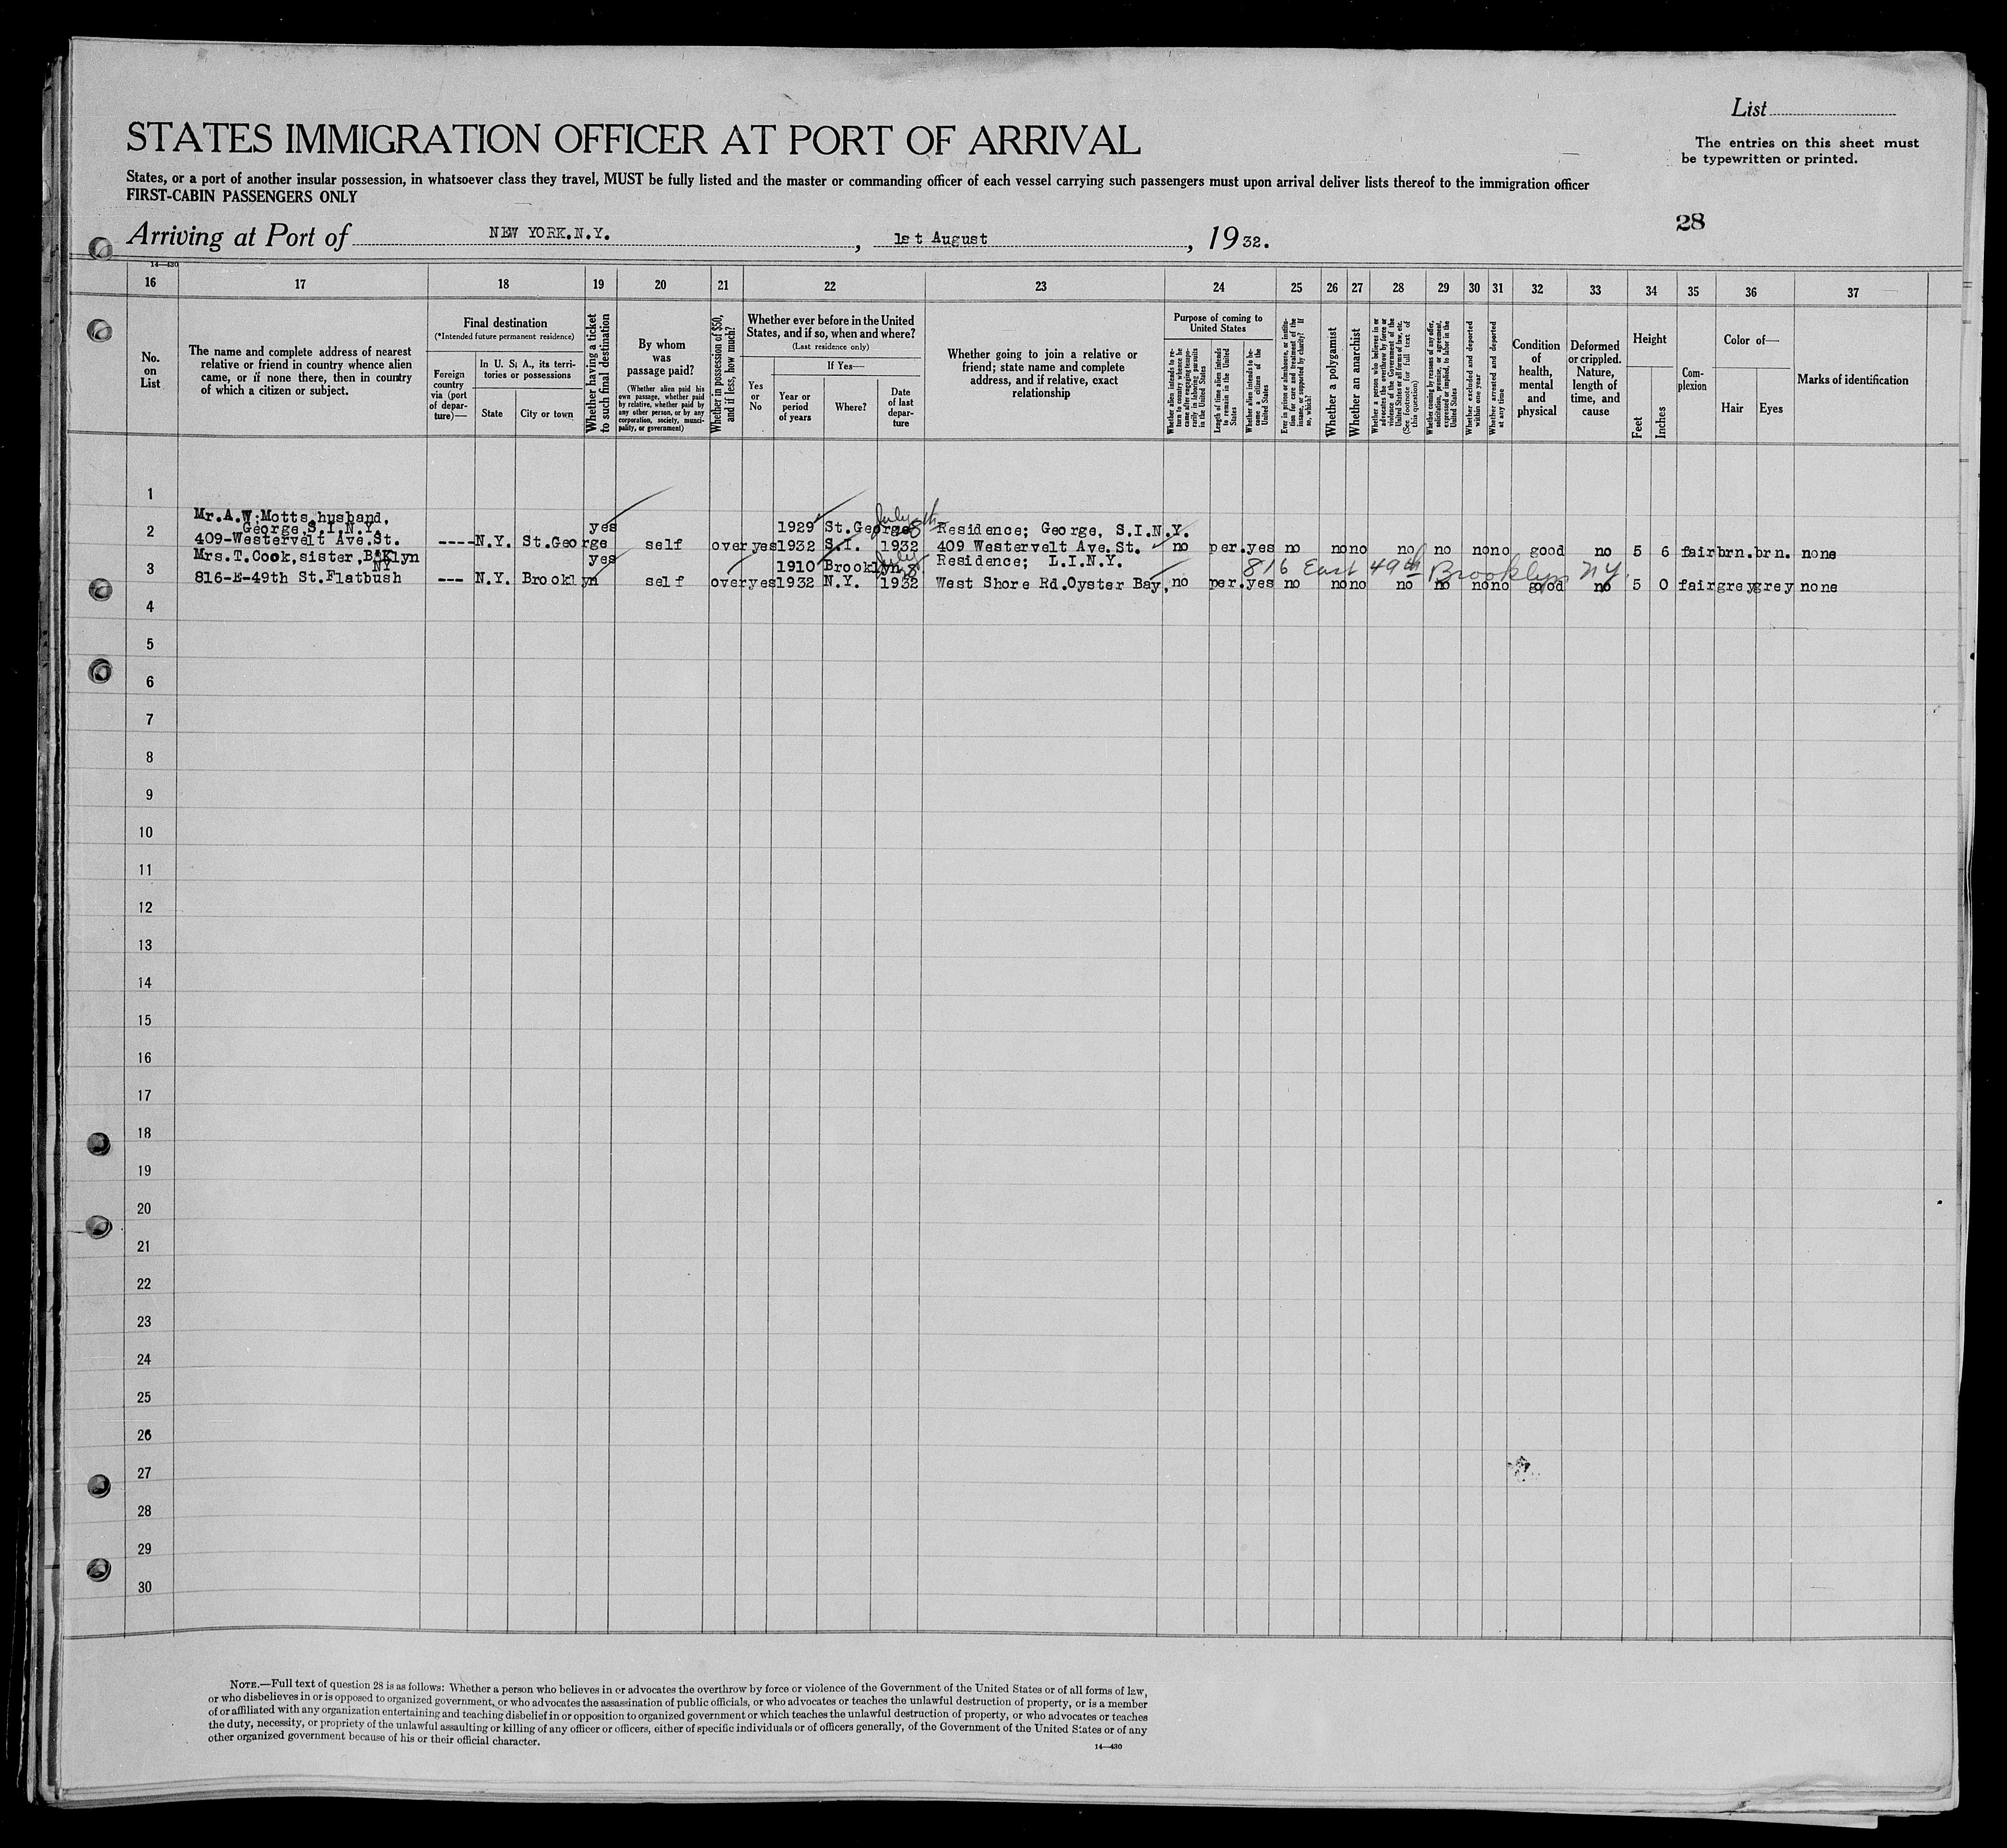 List
STATES IMMIGRATION OFFICER AT PORT OF ARRIVAL
The entries on this sheet must
be typewritten or printed.
States, or a port of another insular possession, in whatsoever class they travel, MUST be fully listed and the master or commanding officer of each vessel carrying such passengers must upon arrival deliver lists thereof to the immigration officer
FIRST-CABIN PASSENGERS ONLY
28
Arriving at Port of NEW YORK.N.Y. , 1st August , 1932.
14—430
16 17 18 19 20 21 22 23 24 25 26 27 28 29 30 31 32 33 34 35 36 37
No.
on
List
The name and complete address of nearest
relative or friend in country whence alien
came, or if none there, then in country
of which a citizen or subject.
Final destination
(*Intended future permanent residence)
Foreign
country
via (port
of depar-
ture)—
In U. S. A., its terri-
tories or possessions
State
City or town
Whether having a ticket
to such final destination
By whom
was
passage paid?
(Whether alien paid his
own passage, whether paid
by relative, whether paid by
any other person, or by any
corporation, society, munici-
pality, or government)
Whether in possession of $50,
and if less, how much?
Whether ever before in the United
States, and if so, when and where?
(Last residence only)
Yes
or
No
If Yes—
Year or
period
of years
Where?
Date
of last
depar-
ture
Whether going to join a relative or
friend; state name and complete
address, and if relative, exact
relationship
Purpose of coming to
United States
Whether alien intends to re-
turn to country whence he
came after engaging tempo-
rarily in laboring pursuits
in the United States
Length of time alien intends
to remain in the United
States
Whether alien intends to be-
come a citizen of the
United States
Ever in prison or almshouse, or institu-
tion for care and treatment of the
insane, or supported by charity? If
so, which?
Whether a polygamist
Whether an anarchist
Whether a person who believes in or
advocates the overthrow by force or
violence of the Government of the
United States or all forms of law, etc.
(See footnote for full text of
this question)
Whether coming by reasons of any offer,
solicitation, promise, or agreement,
expressed or implied, to labor in the
United States
Whether excluded and deported
within one year
Whether arrested and deported
at any time
Condition
of
health,
mental
and
physical
Deformed
or crippled.
Nature,
length of
time, and
cause
Height
Feet
Inches
Com-
plexion
Color of—
Hair
Eyes
Marks of identification
1
Mr.A.W.Motts,husband,
George,S.I.N.Y. yes 1929 St.George July 8th Residence; George, S.I.N.Y.
2 409-Westervelt Ave.St. ---- N.Y. St.George self over yes 1932 S.I. 1932 409 Westervelt Ave.St. no per. yes no no no no no no no good no 5 6 fair brn. brn. none
Mrs.T.Cook,sister,B'Klyn
NY yes 1910 Brooklyn July 8 Residence; L.I.N.Y. 816 East 49th Brooklyn NY.
3 816-E-49th St.Flatbush --- N.Y. Brooklyn self over yes 1932 N.Y. 1932 West Shore Rd.Oyster Bay, no per. yes no no no no no no no good no 5 0 fair grey grey none
4
5
6
7
8
9
10
11
12
13
14
15
16
17
18
19
20
21
22
23
24
25
26
27
28
29
30
NOTE.—Full text of question 28 is as follows: Whether a person who believes in or advocates the overthrow by force or violence of the Government of the United States or of all forms of law,
or who disbelieves in or is opposed to organized government, or who advocates the assassination of public officials, or who advocates or teaches the unlawful destruction of property, or is a member
of or affiliated with any organization entertaining and teaching disbelief in or opposition to organized government or which teaches the unlawful destruction of property, or who advocates or teaches
the duty, necessity, or propriety of the unlawful assaulting or killing of any officer or officers, either of specific individuals or of officers generally, of the Government of the United States or of any
other organized government because of his or their official character.
14—430